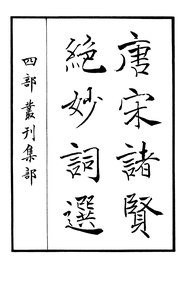 唐宋諸賢
絕妙詞選
四部叢刊集部